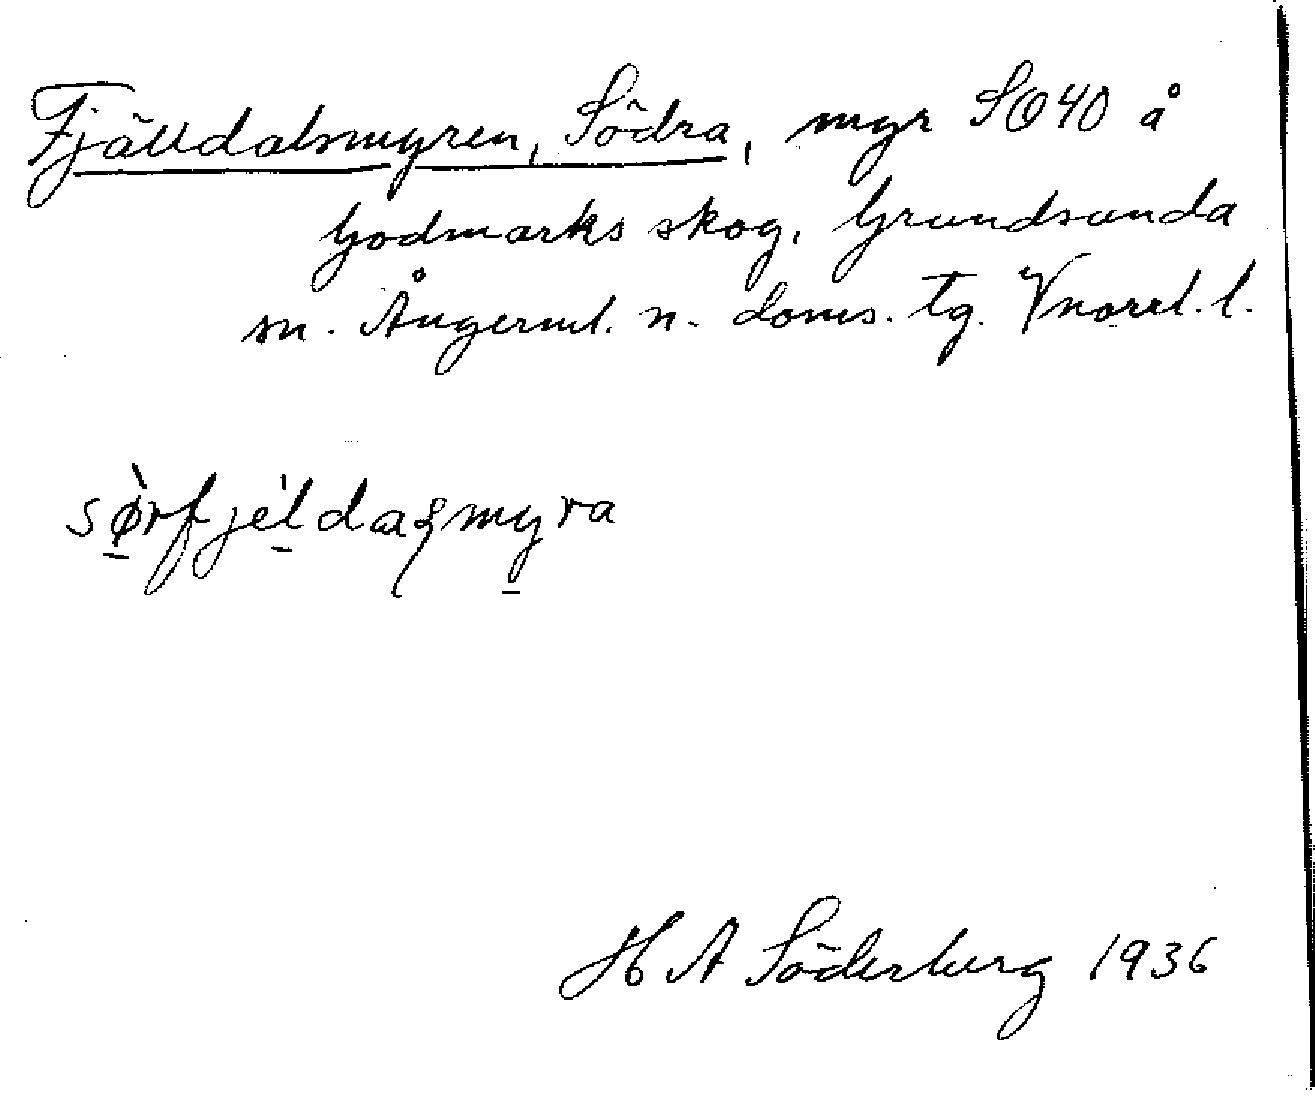 Fjälldalsmyren, Södra, myr SO40 å
Godmarks skog, Grundsunda
sn. Ångerml. n. doms. tg. Vnorrl. l.
sørfjèldaꞩmyra
H A Söderberg 1936